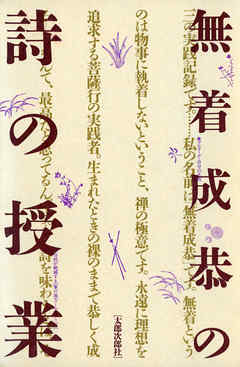 無着成恭の
の実践記録です……私の名前は無着成恭です。無着という
のは物事に執着しないということ、禅の極意です。永遠に理想を
追求する菩薩行の実践者。生まれたときの裸のままで恭しく成
て、最 思ってる 詩を味わ
詩の授業
[太郎次郎社]